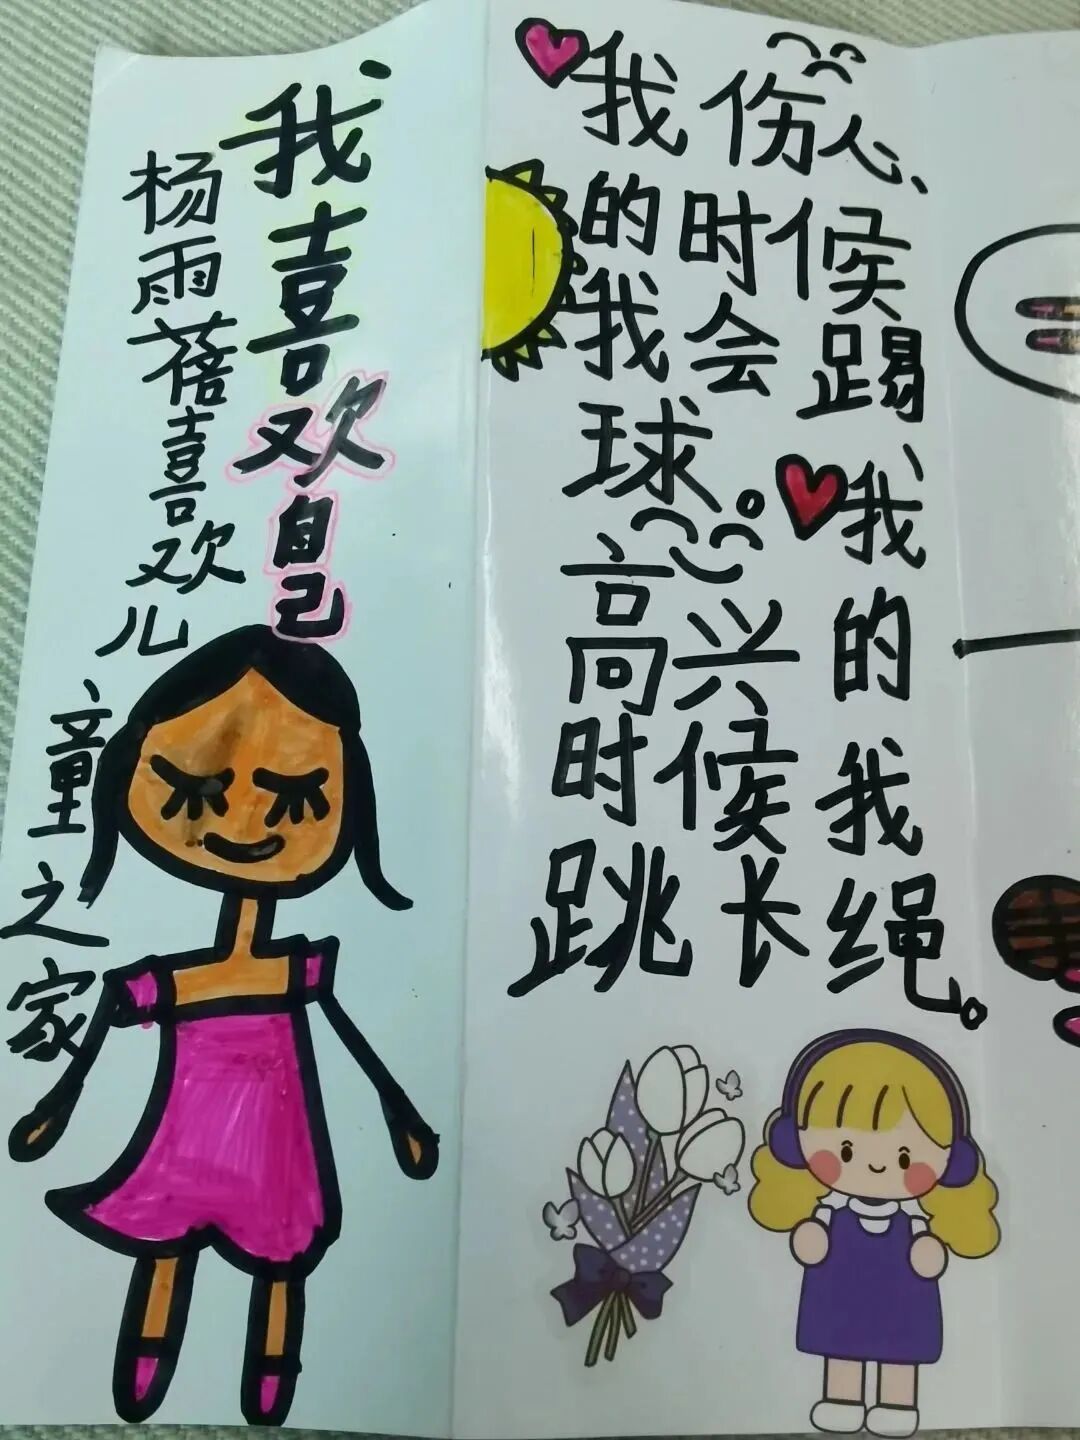 我喜欢自己
杨雨蓓喜欢儿童之家
我伤心
的时候
我会踢
球。我
高兴的
时候我
跳长绳。